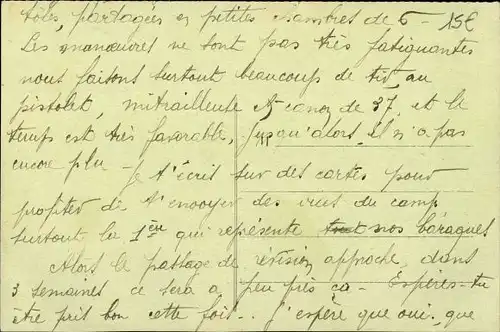 tôles, partagées en petites chambres de 6 - 15€
Les manœuvres ne sont pas très fatiguantes
nous faisons surtout beaucoup de tir, au
pistolet, mitrailleuse et canon de 37, et le
temps est très favorable, jusqu'alors, il n'a pas
encore plu - Je t'écris sur des cartes pour
profiter de t'envoyer des vues du camp
surtout la 1ère qui représente tout nos baraques
Alors le passage de révision approche, dans
3 semaines ce sera à peu près ça - Espères-tu
être prit bon cette fois - J'espère que oui - que